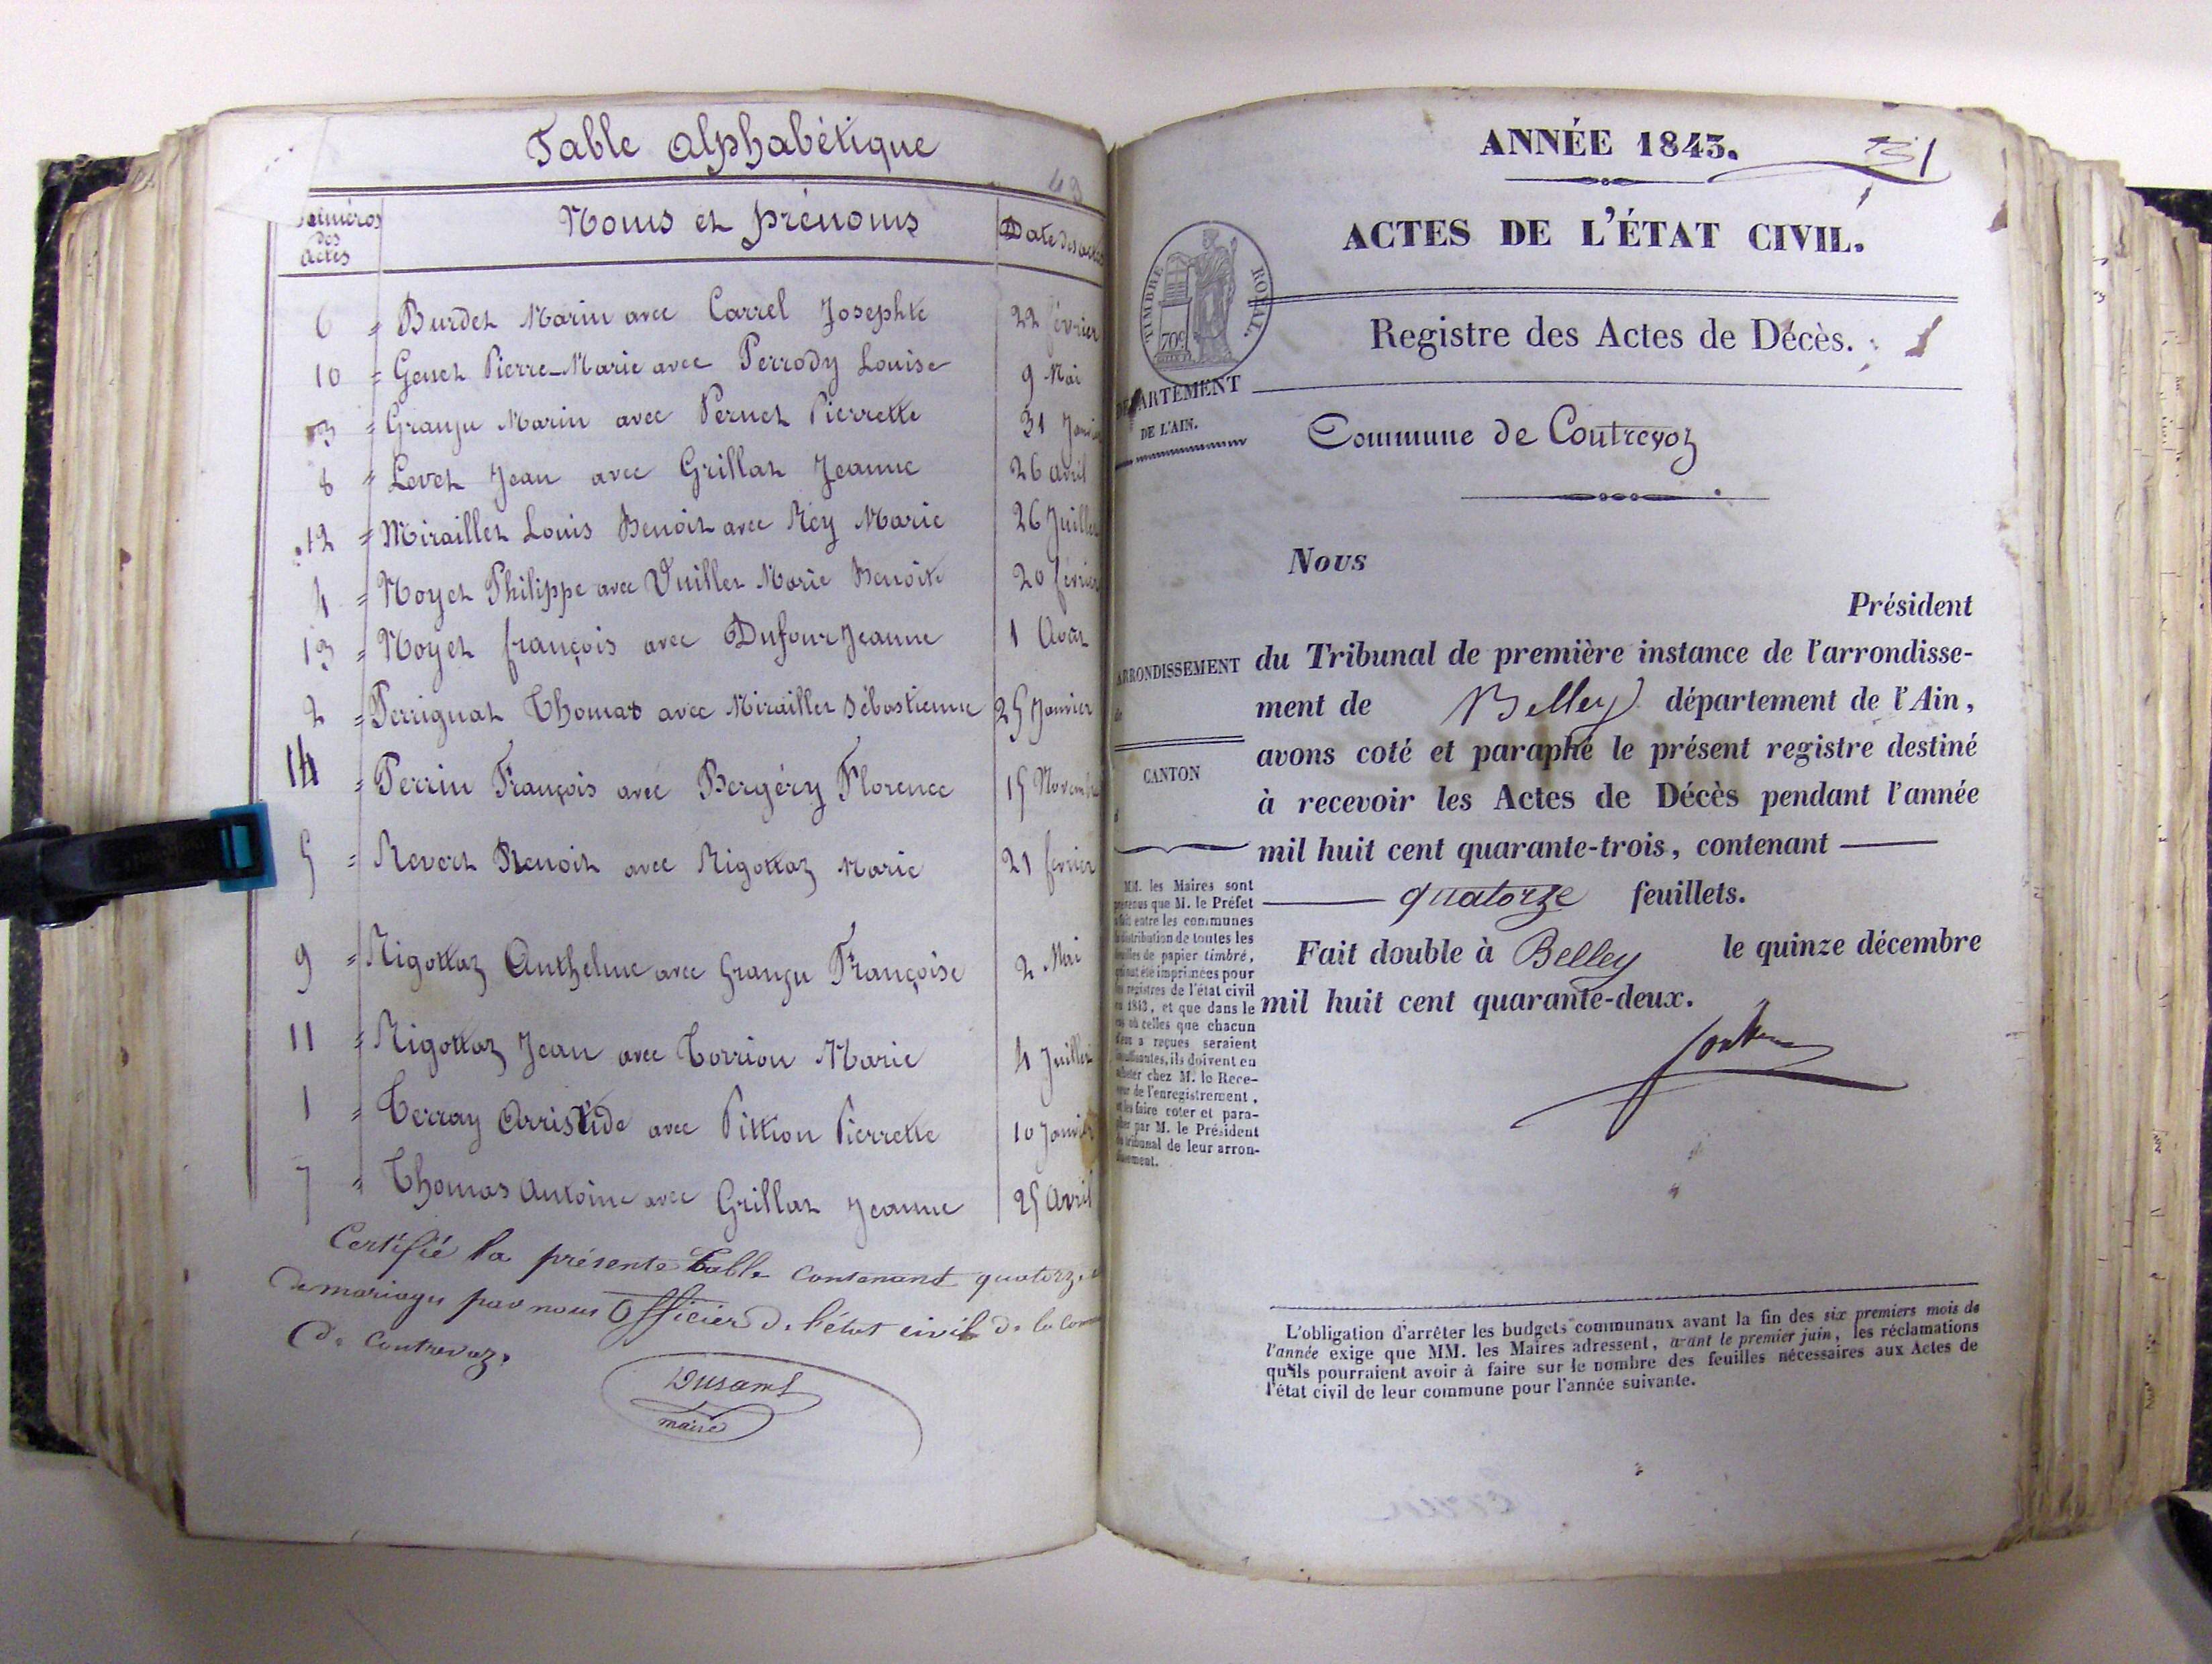 Table alphabétique
Numéros
des
actes
Noms et prénoms
Date des actes
6 = Burdet Marin avec Carrel Josephte 22 février
10 = Genet Pierre-Marie avec Perrody Louise 9 Mai
3 = Granju Marin avec Pernet Pierrette 31 Janvier
8 = Levet Jean avec Grillat Jeanne 26 avril
12 = Miraillet Louis Benoit avec Rey Marie 26 Juillet
4 = Moyet Philippe avec Vuillet Marie Benoite 20 février
13 = Moyet françois avec Dufour Jeanne 1 Août
2 = Perrignat Thomas avec Miraillet Sébastienne 25 Janvier
14 = Perrin François avec Bergéry Florence 15 Novembre
5 = Revert Benoit avec Rigottaz Marie 21 février
9 = Rigottaz Anthelme avec Granju Françoise 2 Mai
11 = Rigottaz Jean avec Torrion Marie 4 Juillet
1 = Terray Arristide avec Pittion Pierrette 10 Janvier
7 = Thomas Antoine avec Grillat Jeanne 25 Avril
Certifié la présente table contenant quatorze
de mariages par nous Officier de l'état civil de la
de Contrevoz.
Dusard
maire
ANNÉE 1843.
ACTES DE L'ÉTAT CIVIL.
TIMBRE ROYAL.
Registre des Actes de Décès.
DÉPARTEMENT
DE L'AIN.
Commune de Contrevoz
Nous
Président
ARRONDISSEMENT
du Tribunal de première instance de l'arrondisse-
ment de Belley département de l'Ain,
avons coté et paraphé le présent registre destiné
CANTON
à recevoir les Actes de Décès pendant l'année
mil huit cent quarante-trois, contenant
quatorze feuillets.
Fait double à Belley le quinze décembre
mil huit cent quarante-deux.
MM. les Maires sont
prévenus que M. le Préfet
a fait entre les communes
la distribution de toutes les
feuilles de papier timbré,
qui ont été imprimées pour
les registres de l'état civil
en 1843, et que dans le
cas où celles que chacun
d'eux a reçues seraient
insuffisantes, ils doivent en
acheter chez M. le Rece-
veur de l'enregistrement,
et les faire coter et para-
pher par M. le Président
du tribunal de leur arron-
dissement.
L'obligation d'arrêter les budgets communaux avant la fin des six premiers mois de
l'année exige que MM. les Maires adressent, avant le premier juin, les réclamations
qu'ils pourraient avoir à faire sur le nombre des feuilles nécessaires aux Actes de
l'état civil de leur commune pour l'année suivante.